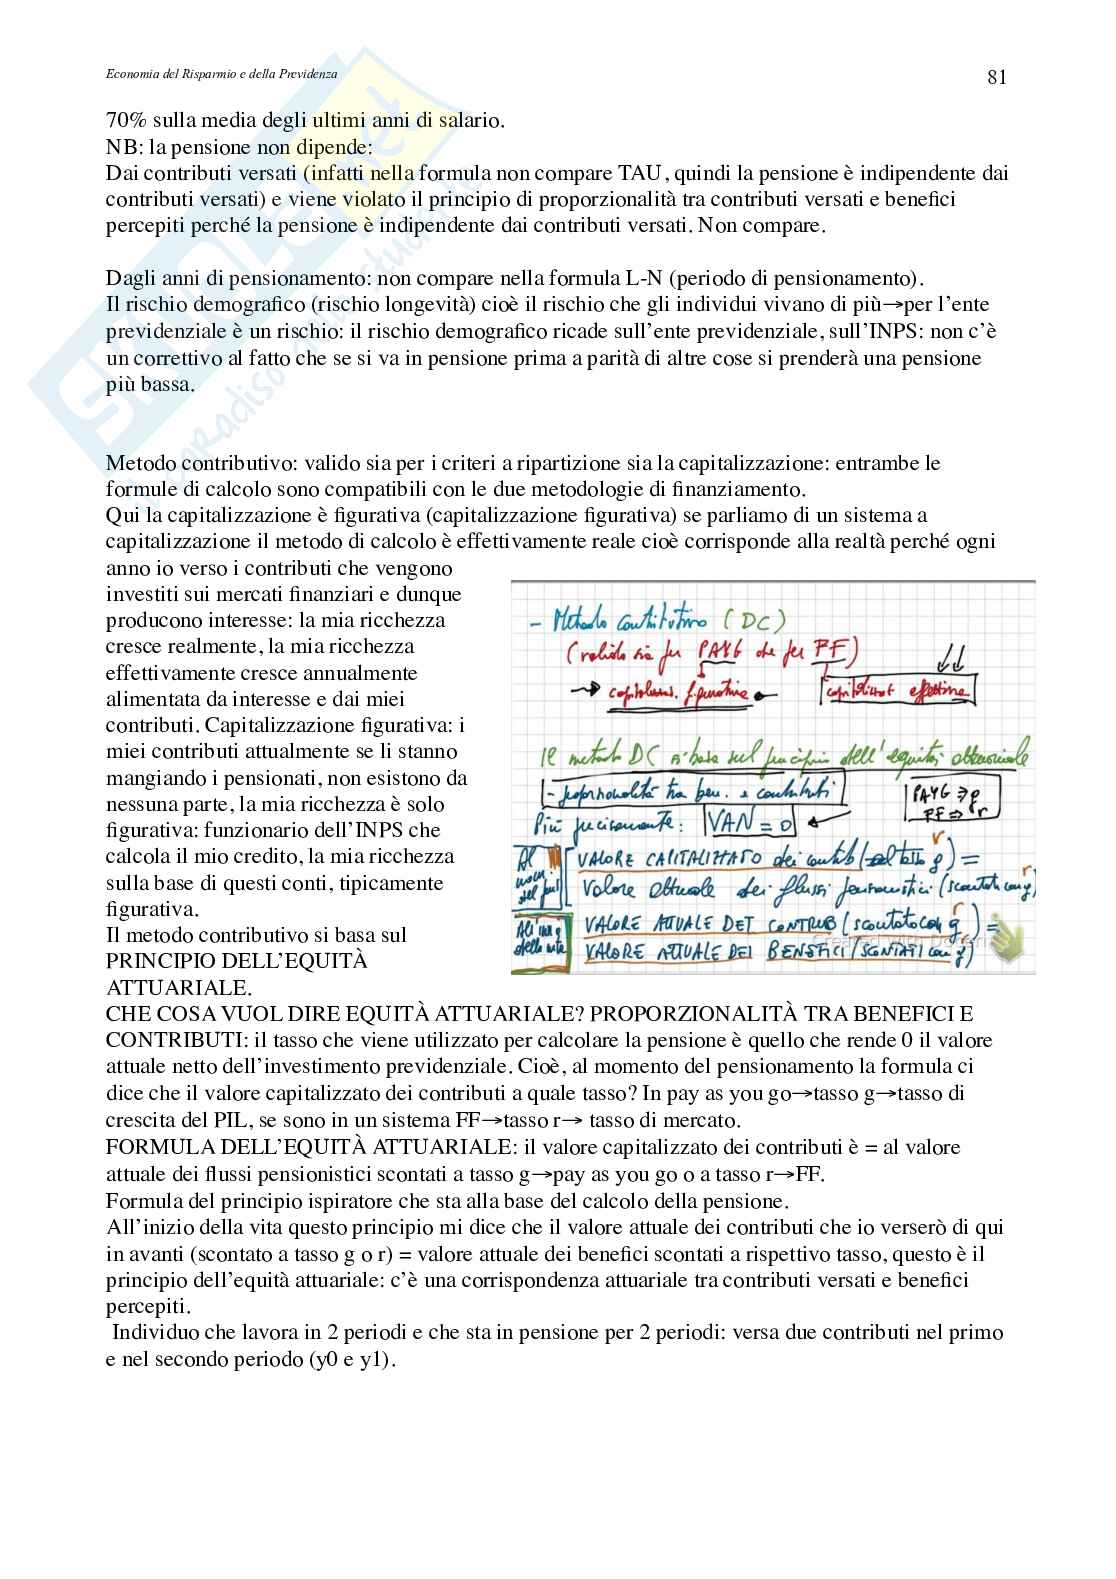 Economia del Risparmio e della Previdenza
81
70% sulla media degli ultimi anni di salario.
NB: la pensione non dipende:
Dai contributi versati (infatti nella formula non compare TAU, quindi la pensione è indipendente dai
contributi versati) e viene violato il principio di proporzionalità tra contributi versati e benefici
percepiti perché la pensione è indipendente dai contributi versati. Non compare.
Dagli anni di pensionamento: non compare nella formula L-N (periodo di pensionamento).
Il rischio demografico (rischio longevità) cioè il rischio che gli individui vivano di più→per l’ente
previdenziale è un rischio: il rischio demografico ricade sull’ente previdenziale, sull’INPS: non c’è
un correttivo al fatto che se si va in pensione prima a parità di altre cose si prenderà una pensione
più bassa.
Metodo contributivo: valido sia per i criteri a ripartizione sia la capitalizzazione: entrambe le
formule di calcolo sono compatibili con le due metodologie di finanziamento.
Qui la capitalizzazione è figurativa (capitalizzazione figurativa) se parliamo di un sistema a
capitalizzazione il metodo di calcolo è effettivamente reale cioè corrisponde alla realtà perché ogni
anno io verso i contributi che vengono
investiti sui mercati finanziari e dunque
producono interesse: la mia ricchezza
cresce realmente, la mia ricchezza
effettivamente cresce annualmente
alimentata da interesse e dai miei
contributi. Capitalizzazione figurativa: i
miei contributi attualmente se li stanno
mangiando i pensionati, non esistono da
nessuna parte, la mia ricchezza è solo
figurativa: funzionario dell’INPS che
calcola il mio credito, la mia ricchezza
sulla base di questi conti, tipicamente
figurativa.
Il metodo contributivo si basa sul
PRINCIPIO DELL’EQUITÀ
ATTUARIALE.
- Metodo contributivo (DC)
(valido sia per PAYG che per FF)
capitalizzaz. figurativa
capitalizzaz effettiva
Il metodo DC si basa sul principio dell'equità attuariale
- proporzionalità tra ben. e contributi
PAYG ⇒ g
FF ⇒ r
Più precisamente: VAN = 0
VALORE CAPITALIZZATO dei contrib (al tasso g) =
r
Valore attuale dei flussi pensionistici (scontati con g)
r
VALORE ATTUALE DEI CONTRIB (scontato con g) =
r
VALORE ATTUALE DEI BENEFICI (SCONTATI con g)
CHE COSA VUOL DIRE EQUITÀ ATTUARIALE? PROPORZIONALITÀ TRA BENEFICI E
CONTRIBUTI: il tasso che viene utilizzato per calcolare la pensione è quello che rende 0 il valore
attuale netto dell’investimento previdenziale. Cioè, al momento del pensionamento la formula ci
dice che il valore capitalizzato dei contributi a quale tasso? In pay as you go→tasso g→tasso di
crescita del PIL, se sono in un sistema FF→tasso r→ tasso di mercato.
FORMULA DELL’EQUITÀ ATTUARIALE: il valore capitalizzato dei contributi è = al valore
attuale dei flussi pensionistici scontati a tasso g→pay as you go o a tasso r→FF.
Formula del principio ispiratore che sta alla base del calcolo della pensione.
All’inizio della vita questo principio mi dice che il valore attuale dei contributi che io verserò di qui
in avanti (scontato a tasso g o r) = valore attuale dei benefici scontati a rispettivo tasso, questo è il
principio dell’equità attuariale: c’è una corrispondenza attuariale tra contributi versati e benefici
percepiti.
Individuo che lavora in 2 periodi e che sta in pensione per 2 periodi: versa due contributi nel primo
e nel secondo periodo (y0 e y1).